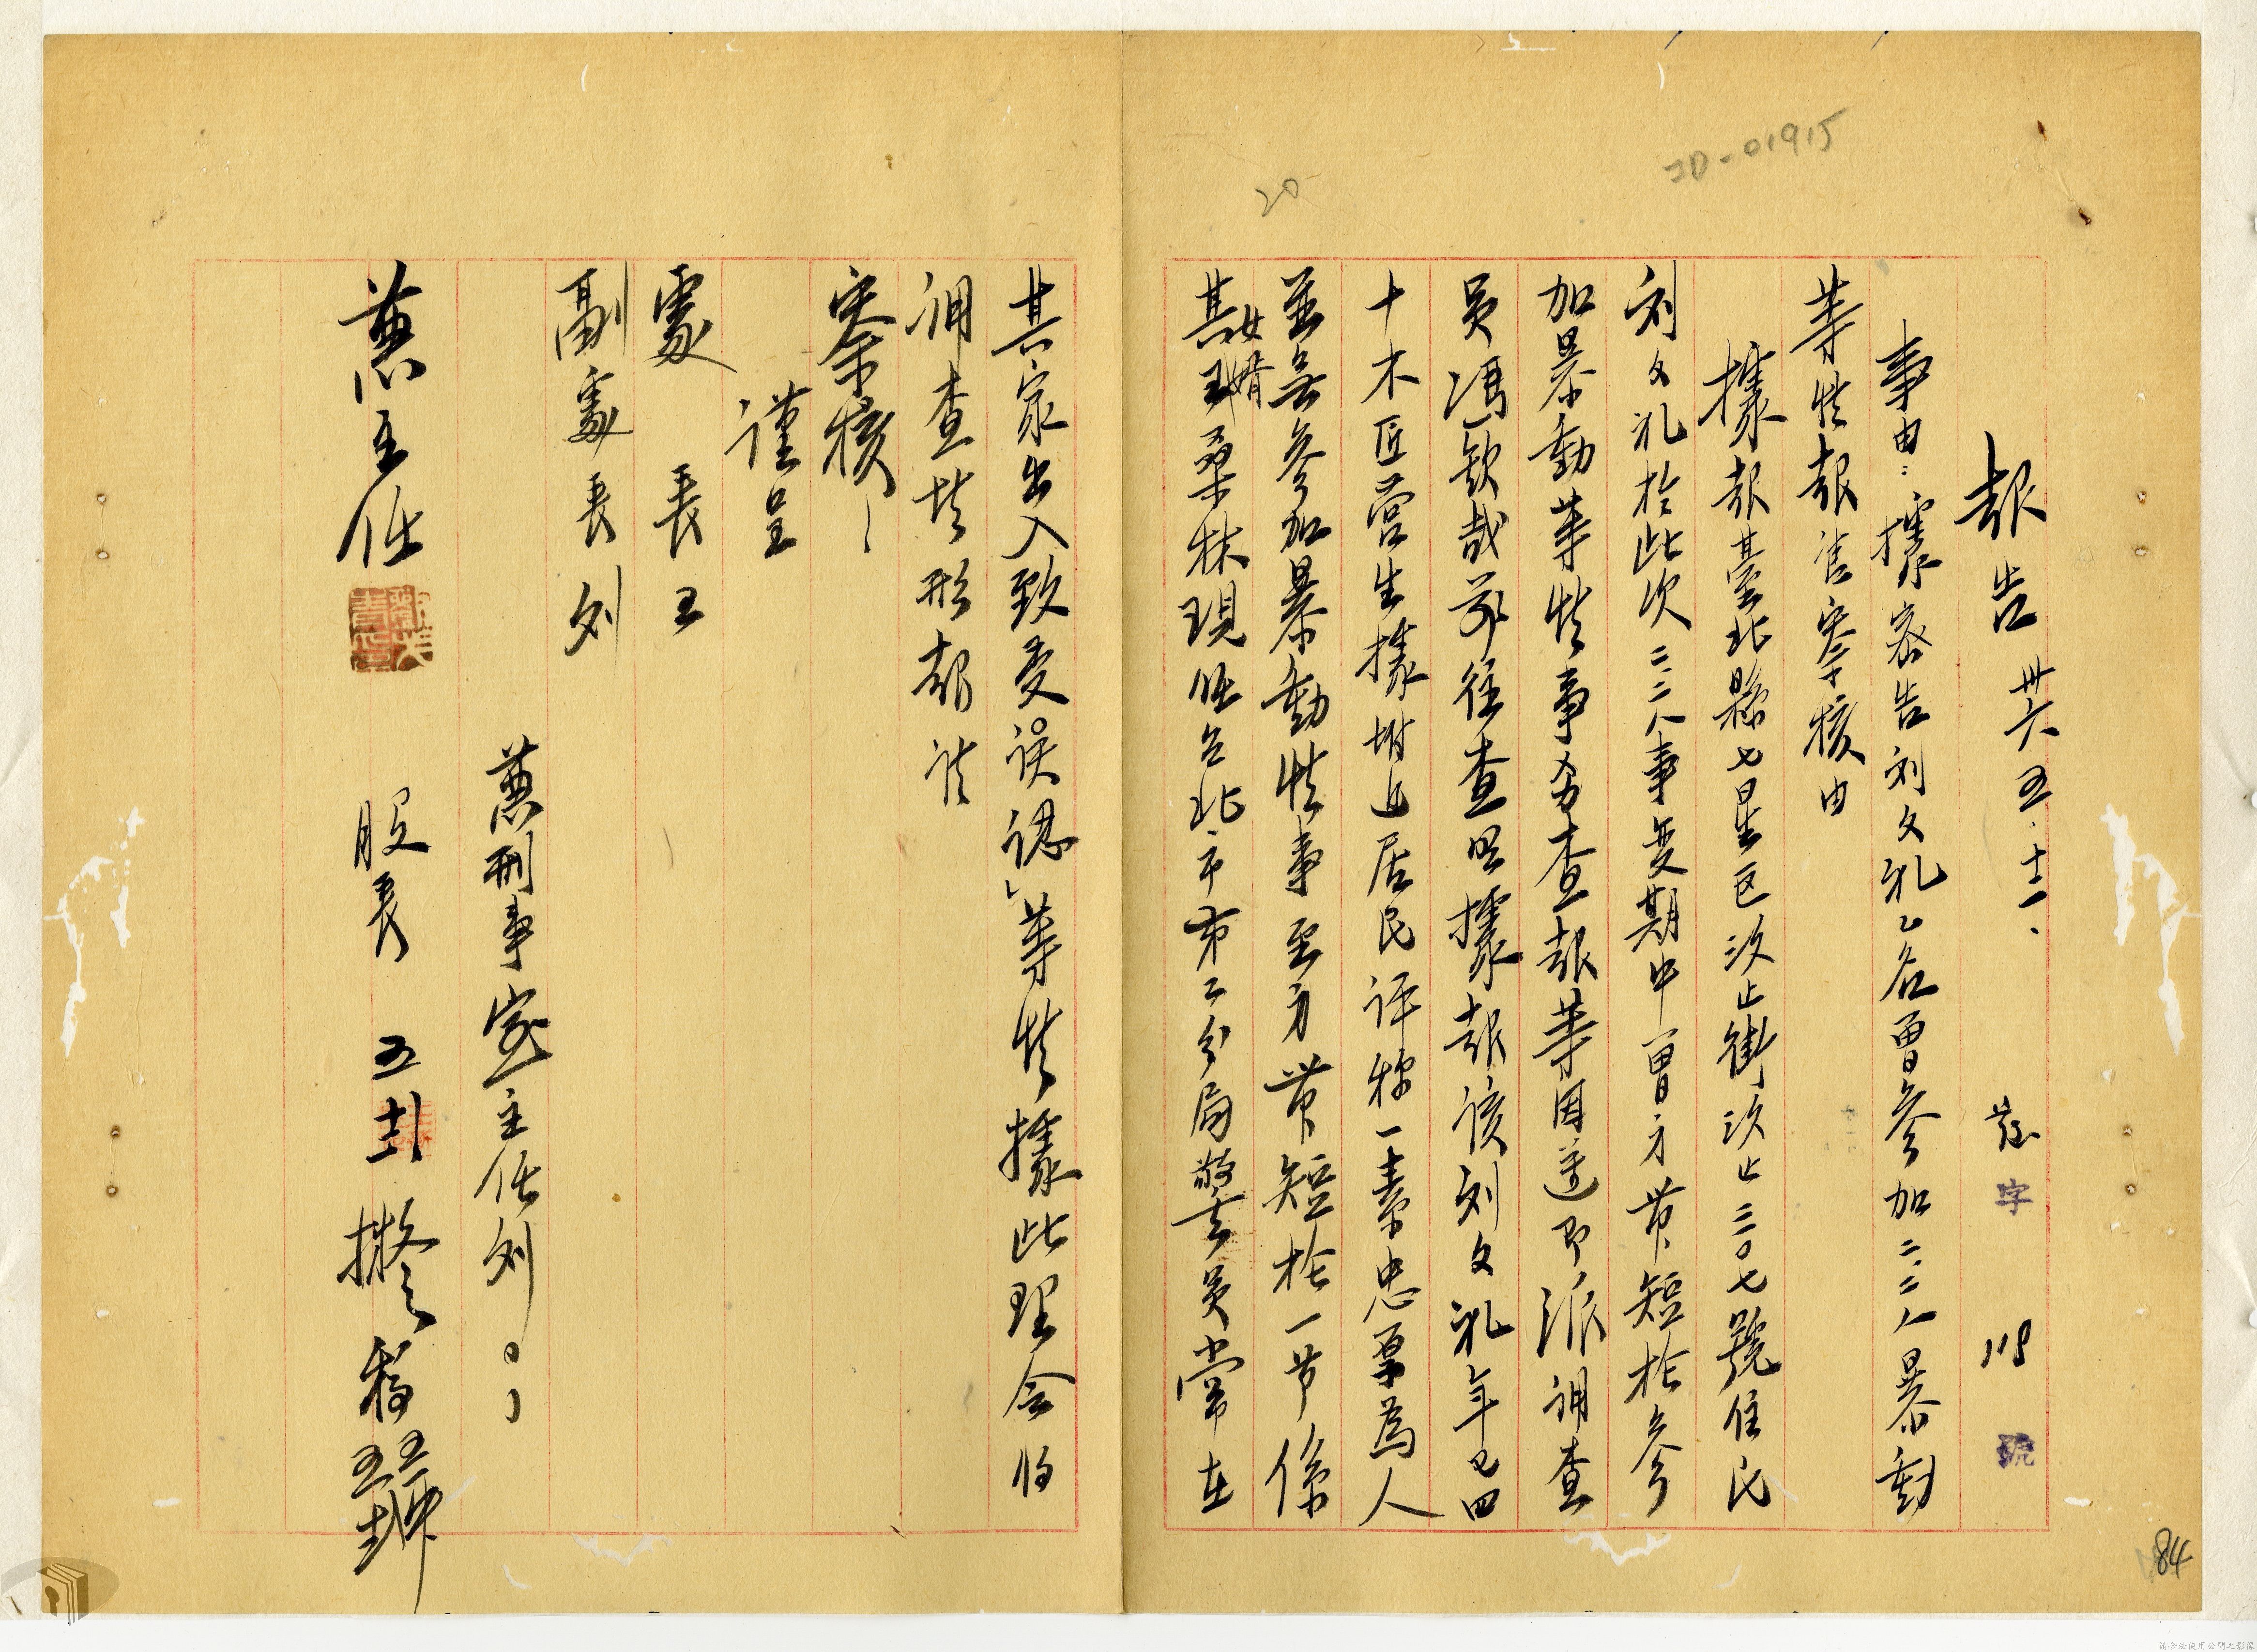 JD-01915
20
報告 卅六、五、十二、 字 118 號
事由：據密告刘文礼乙名曾參加二二八暴動
等情報請察核由
據報臺北縣七星区汐止街汐止三三〇七號住民
刘文礼於此次二二八事变期中曾身带短枪參
加暴動等情事务查報等因遵即派調查
員馮欽哉前往查明據報该刘文礼年已四
十木匠营生據附近居民评称一素忠厚為人
並無參加暴動情事至身带短枪一节係
其女婿王桑林現任台北市第二分局警員常在
其家出入致受误認」等情據此理合将
調查情形報请
察核
謹呈
處長王
副處長刘
兼刑事室主任刘
兼主任
股長 擬稿
84
請合法使用公開之影像